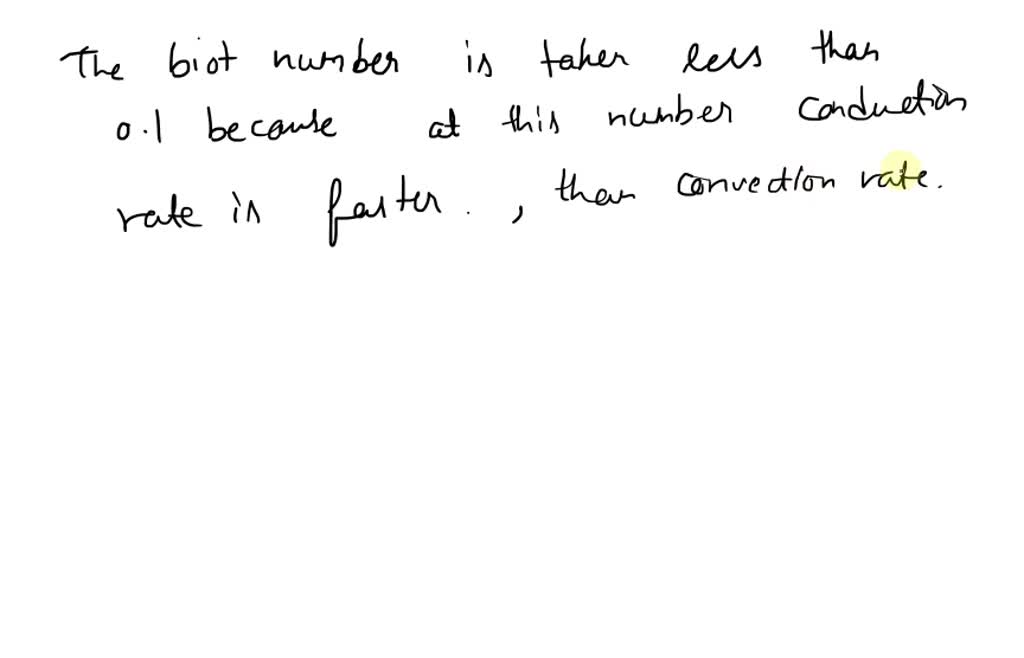 The biot number is taken less than
0.1 because at this number conduction
rate is faster. , than convection rate.